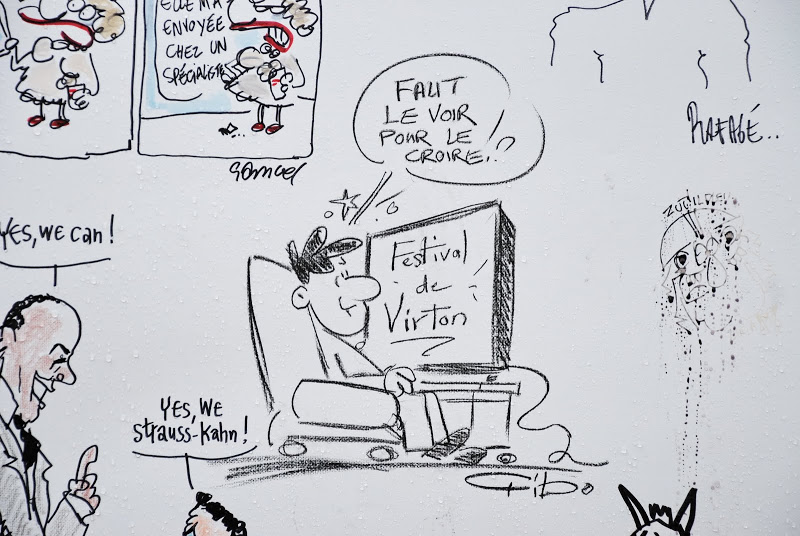 ELLE M'A
ENVOYÉE
CHEZ UN
SPÉCIALISTE
Samuel
FAUT
LE VOIR
POUR LE
CROIRE..!?
RAFAGÉ..
Festival
de
Virton
YES, WE can!
YES, WE
strauss-kahn!
Gibo